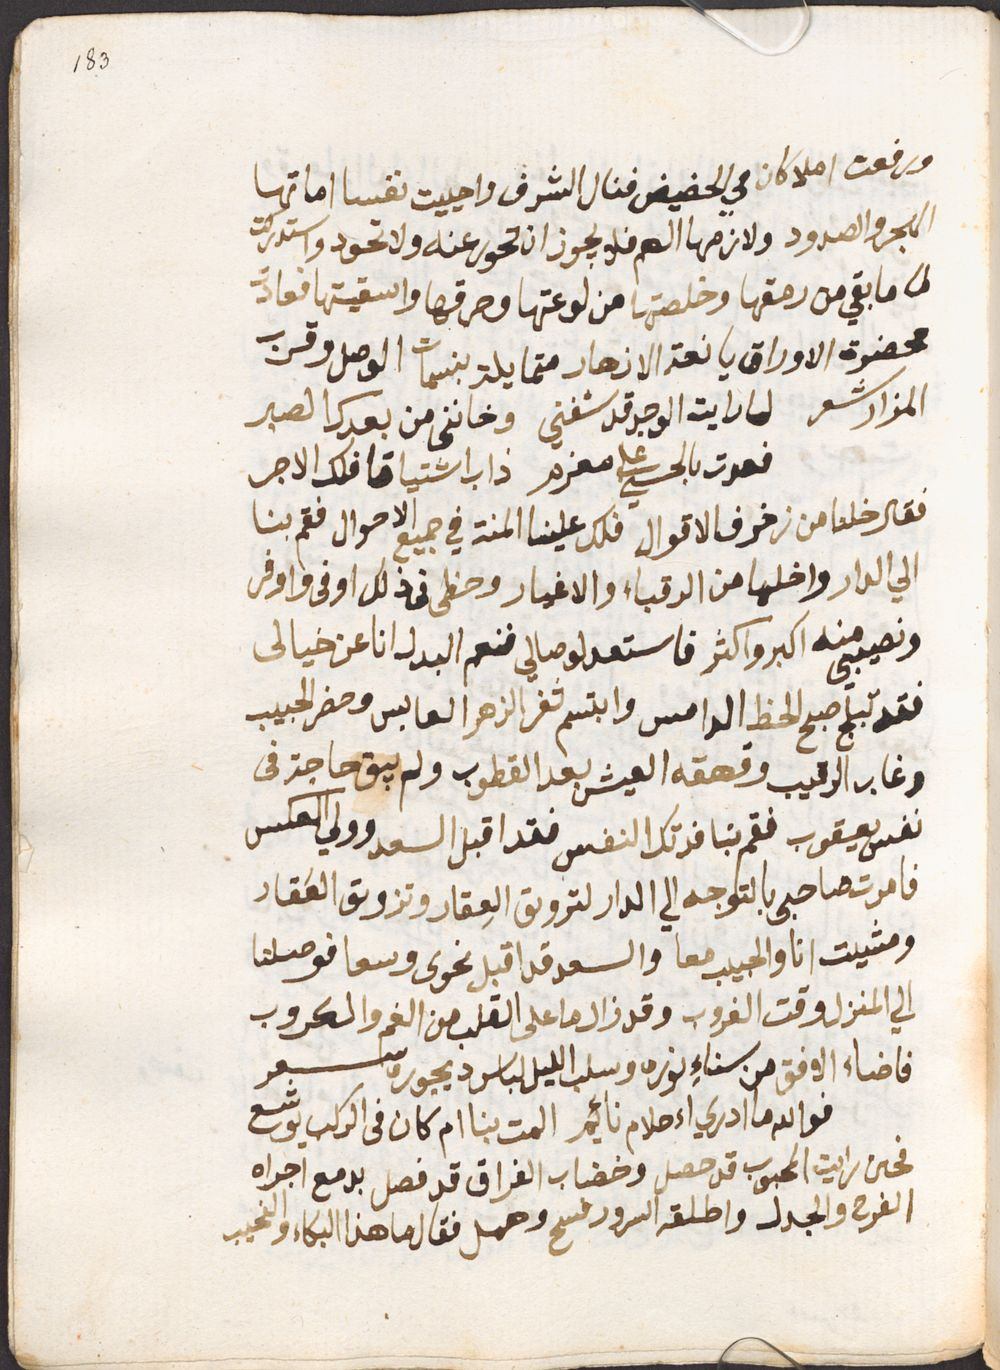 183
ورفعت املا كان في الحضيض فنال الشرف واحييت نفسا اماتها
الهجر والصدود ولازمها الهم فلا يجوز ان تحور عنه ولا تحود واستدركت
لها ما بقي من رمقها وخلصتها من لوعتها وحرقها واسقيتها فعادت
مخضرة الاوراق يانعة الازهار متمايلة بنسمات الوصل وقرب
المزار شعر لما رايت الوجد قد شفني وخانني من بعدك الصبر
فعدت بالحسني على مغرم ذاب اشتياقا فلك الاجر
فقال خلنا من زخرف الاقوال فلك علينا المنة في جميع الاحوال فقم بنا
الي الدار واخلها من الرقباء والاغيار وحظى فى ذلك اوفى واوفر
ونصيبي منه اكبر واكثر فاستعد لوصالي فنعم البدل انا عن خيالى
فقد تبلج صبح الحظ الدامس وابتسم ثغر الزهر العابس وحضر الحبيب
وغاب الرقيب وقهقه العيش بعد القطوب ولم يبق حاجة فى
نفس يعقوب فقم بنا فدتك النفس فقد اقبل السعد وولي العكس
فامرت صاحبى بالتوجه الي الدار لترويق العقار وتزويق العقار
ومشيت انا والحبيب معا والسعد قد اقبل نحوى وسعا فوصلنا
الي المنزل وقت الغروب وقد زال ما على القلب من الغم والكروب
فاضاء الافق من سناء نوره وسلب الليل لباس ديجوره شعر
فوالله ما ادري اءحلام نائم المت بنا ام كان فى الركب يوشع
فحين رايت المحبوب قد حصل وخضاب الفراق قد فصل بدمع اجراه
الفرح والجدل واطلقه السرور فسح وهمل فقال ما هذا البكاء والنحيب